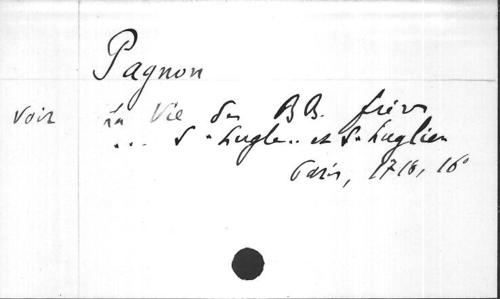 Pagnon
Voir La Vie des BB. frères
... St Lugle.. et St Luglien
Paris, 1718, 16°